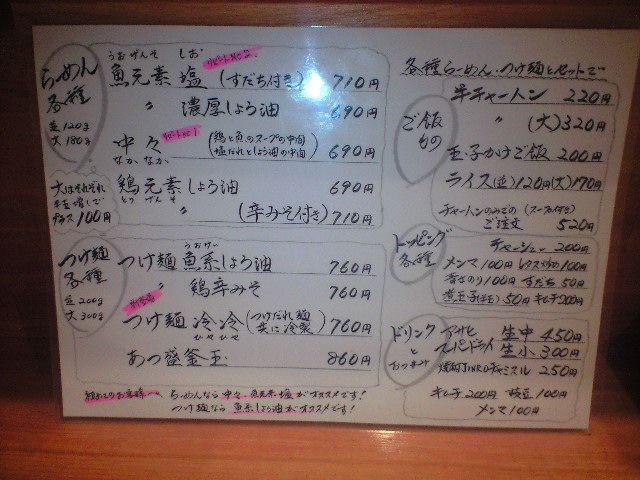 らーめん各種
並120g
大180g
うおげんそ しお リピートNo.2
魚元素 塩 (すだち付き) 710円
〃 濃厚しょう油 690円
リピートNo.1
中々 (鶏と魚のスープの中間 塩だれとしょう油の中間) 690円
なか なか
大はそれぞれ
プラス100円
鶏元素しょう油 690円
とりげんそ
〃 (辛みそ付き) 710円
つけ麺各種
並200g
大300g
つけ麺 魚系しょう油 760円
〃 鶏辛みそ 760円
つけ麺 冷冷 (つけだれ麺共に冷製) 760円
ひえ ひえ
あつ盛釜玉 860円
初めてのお客様へ らーめんなら 中々・魚元素塩がオススメです!
つけ麺なら 魚系しょう油がオススメです!
各種らーめん、つけ麺とセットで
ご飯もの
半チャーハン 220円
〃 (大)320円
玉子かけご飯 200円
ライス(並)120円(大)170円
チャーハンのみでの(スープ付き)
ご注文 520円
トッピング各種
チャーシュー 200円
メンマ100円 100円
青さのり100円 すだち50円
煮玉子 50円 キムチ200円
ドリンクとおつまみ
アサヒ スーパードライ
生中 450円
生小 300円
焼酎JINRO 250円
キムチ200円 枝豆100円
メンマ100円